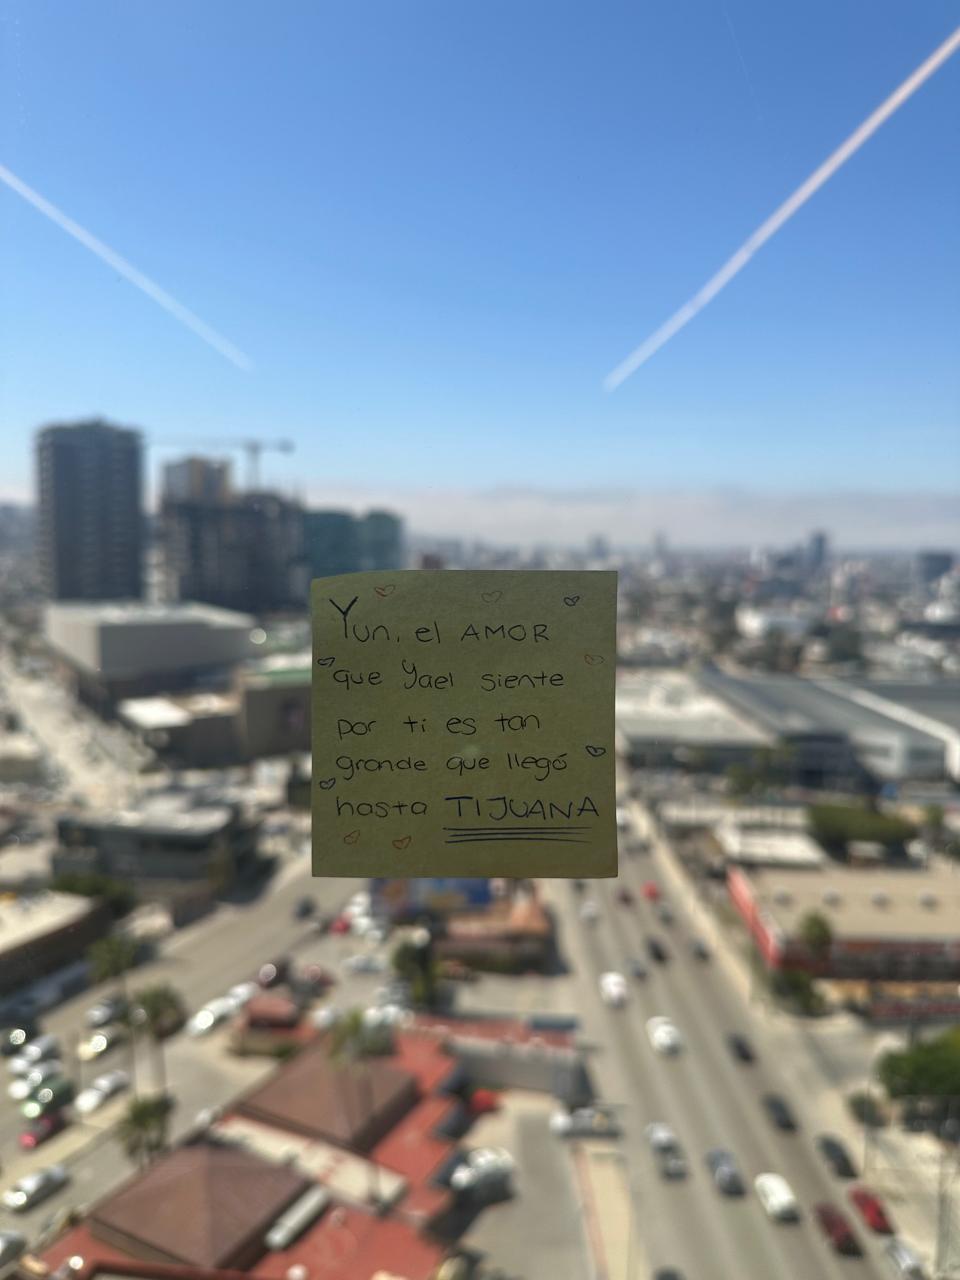 Yun, el AMOR
que Yael siente
por ti es tan
grande que llegó
hasta TIJUANA